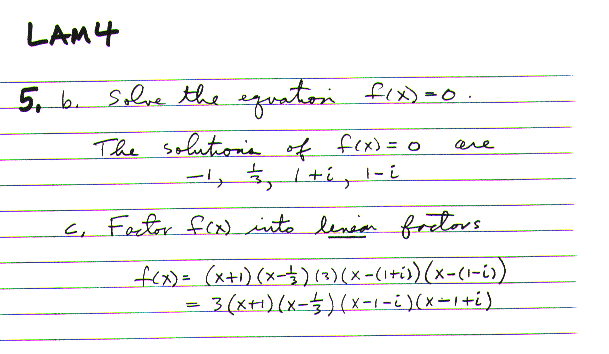 LAM4
5. b. Solve the equation f(x)=0.
The solutions of f(x)=0 are
-1, 1/3, 1+i, 1-i
c. Factor f(x) into linear factors
f(x)= (x+1)(x-1/3)(3)(x-(1+i))(x-(1-i))
= 3(x+1)(x-1/3)(x-1-i)(x-1+i)